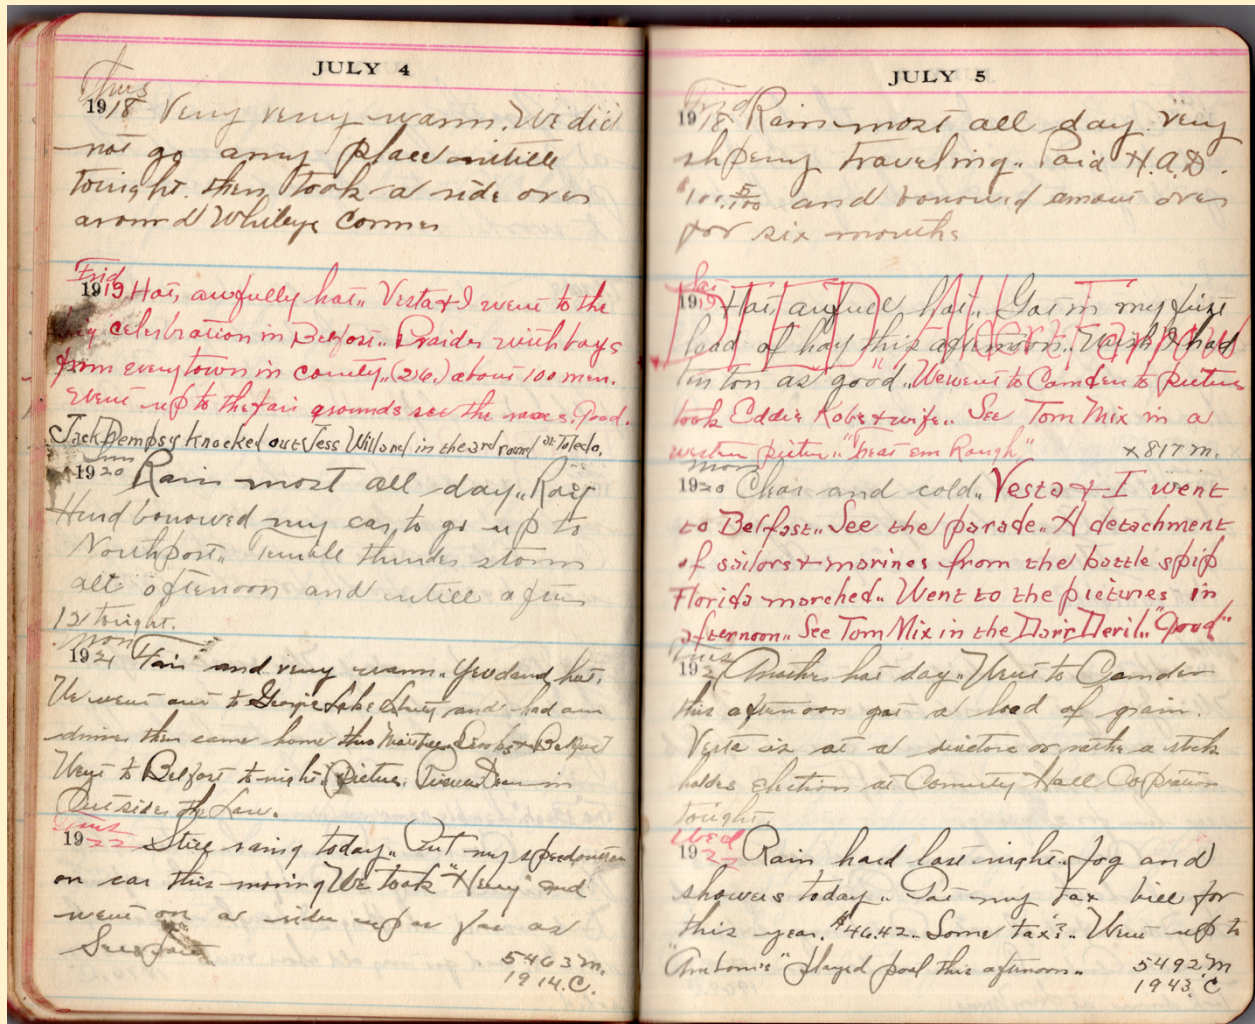 JULY 4
Thurs
1918 Very very warm. We did
not go any place untill
tonight. then took a ride over
around Whiteye Corner
Frid
1919 Hot, awfully hot.. Vesta & I went to the
big celebration in Belfast.. Praider with boys
from every town in county.. (26.) about 100 men.
Went up to the fair grounds see the races. Good.
Jack Dempsy Knocked out Jess Willard in the 3rd round at Toledo.
Sun
1920 Rain most all day.. Ray
Hurd borrowed my car, to go up to
Northport.. Terrible thunder storm
all afternoon and untill after
12 tonight.
Mon
1921 Fair and very warm.. hot.
We went out to Georges Lake and had our
dinner then came home thru & Belfast
Went to Belfast tonight. Picture. in
Outside the Law.
Tues
1922 Still raing today.. Put my speedometer
on car this moring We took "Henry" and
went on a ride up as far as
Searsport
5463 m.
1914. C.
JULY 5
Frid
1918 Rain most all day. Very
slipery traveling.. Paid H.A.D.
$101. 5/100 and borrowed amout over
for six months
Sat
1919 Hot, awfull hot.. Got in my first
DIED Albert
load of hay this afternoon.. had
tin ton as good.. We went to Camden to picture
took Eddie Kobs & wife.. See Tom Mix in a
western picture "Treat em Rough"
x817 m.
Mon
1920 Clear and cold.. Vesta & I went
to Belfast.. See the parade.. A detachment
of sailors & marines from the battle spip
Florida marched.. Went to the pictures in
afternoon.. See Tom Mix in the Dare Devil.. "Good"
Tues
1921 Another hot day.. Went to Camden
this afternoon got a load of grain.
Vesta is at a directors or rather a stock
holders election at Comunity Hall Coperation
tonight
Wed
1922 Rain hard last night. Fog and
showers today.. Got my tax bill for
this year. $46.42.. Some tax?.. Went up to
played pool this afternoon..
5492 m
1943. C